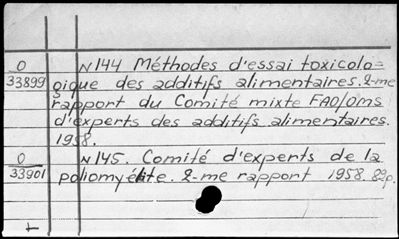 O N144 Méthodes d'essai toxicolo=
33899 gique des additifs alimentaires. 2-me
rapport du Comité mixte FAO/OMS
d'experts des additifs alimentaires.
1958.
O N145. Comité d'experts de la
33901 poliomyélite. 2-me rapport 1958. 82p.